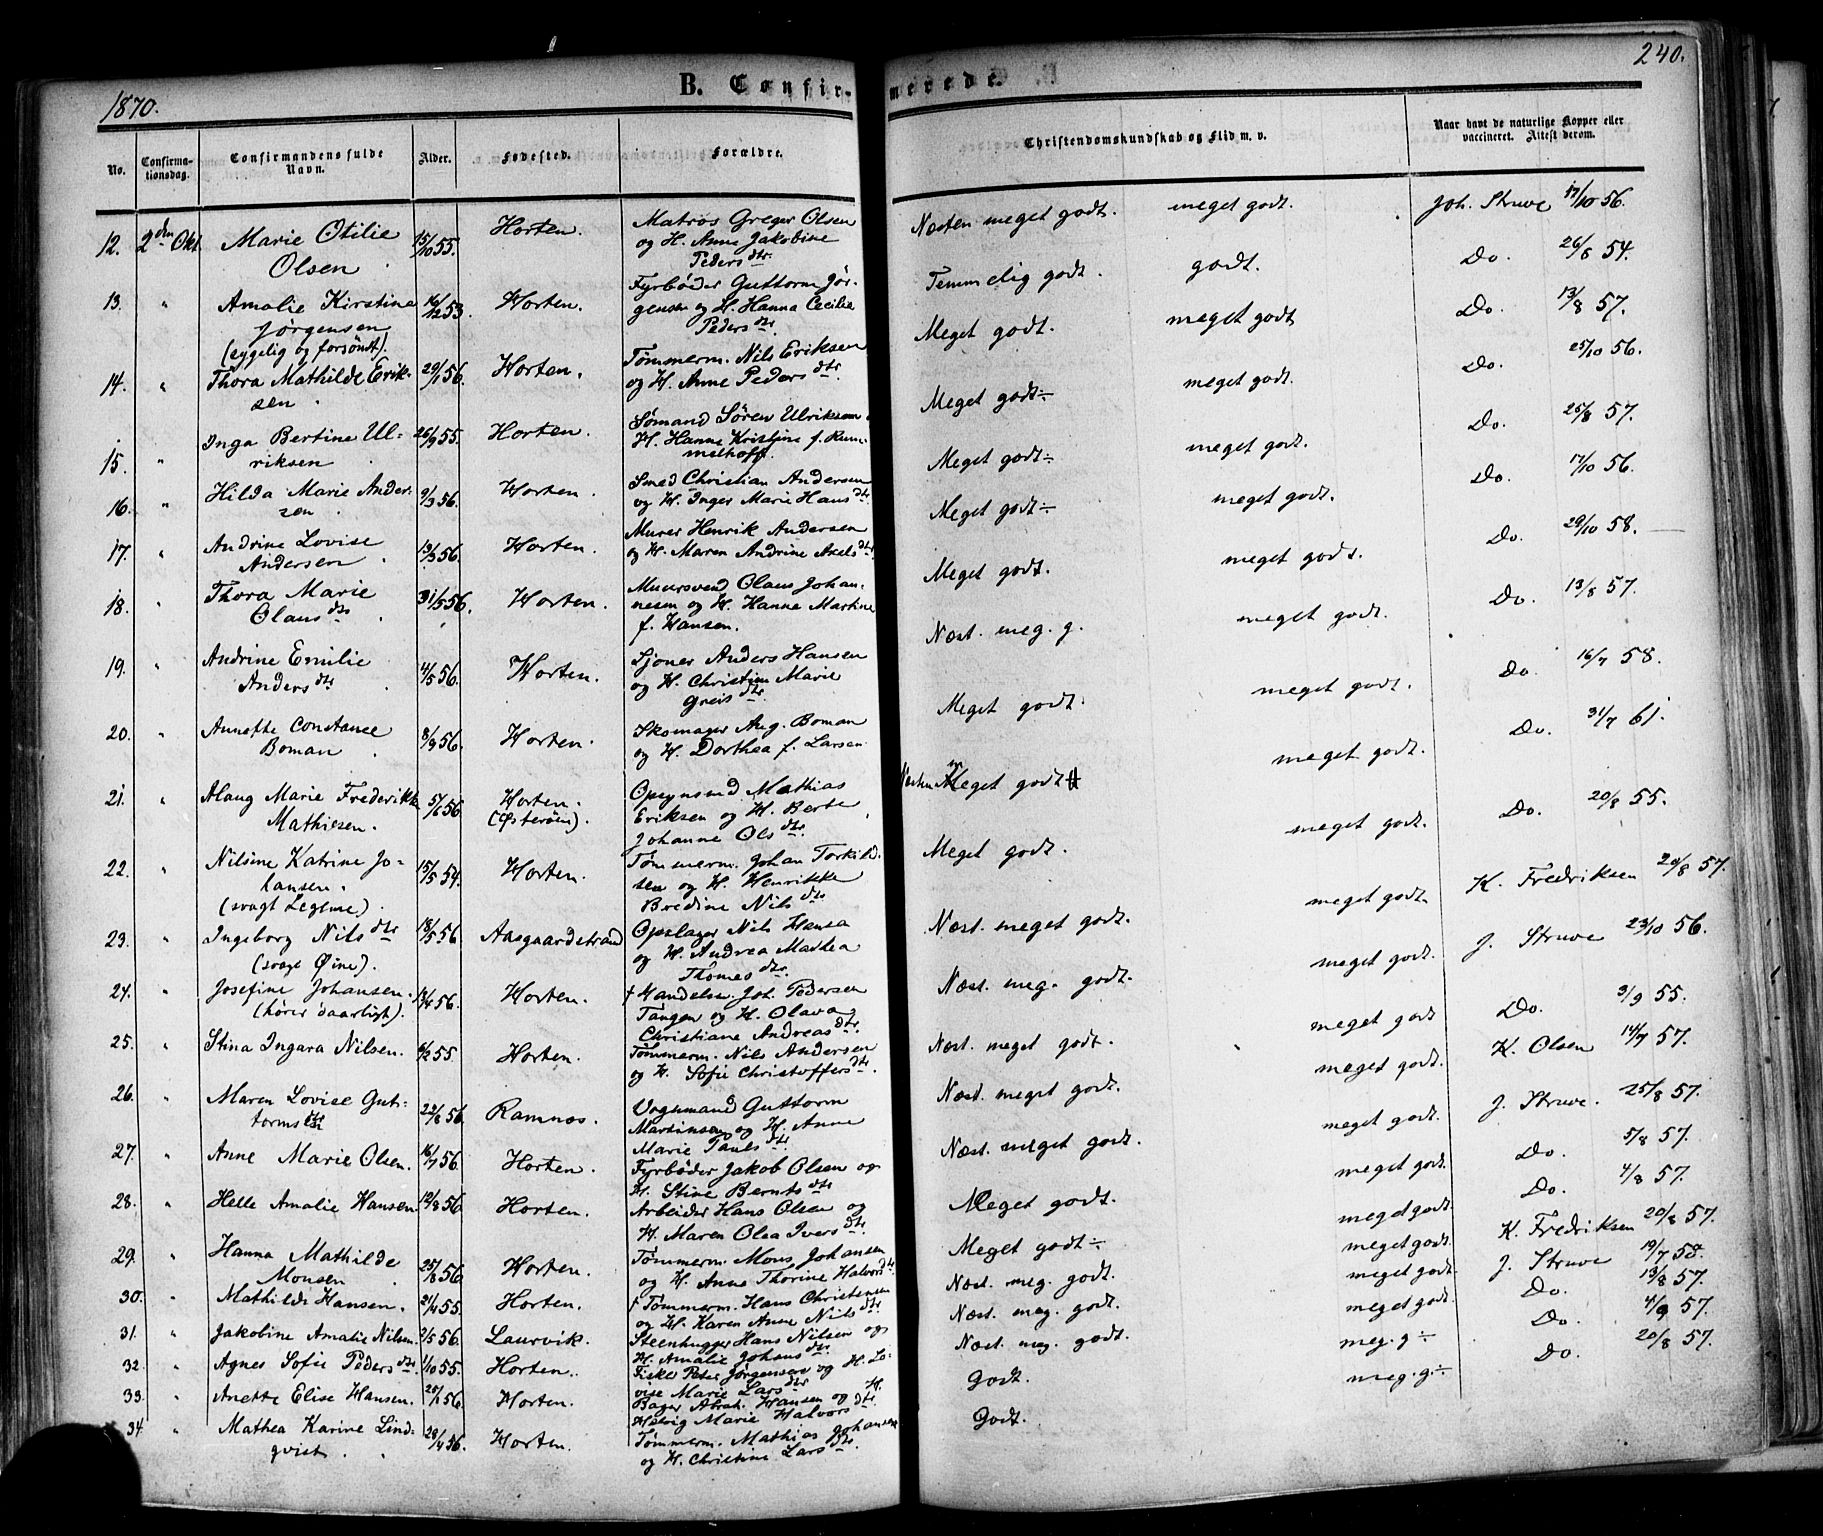 1870.
B. Confir-
merede.
240.
No.
Confirma-
tionsdag.
Confirmandens fulde
Navn.
Alder.
Fødested.
Forældre.
Christendomskundskab og Flid m. v.
Naar havt de naturlige Kopper eller
vaccineret. Attest derom.
12. 2den Okt. Marie Otilie 15/10 55. Horten. Matros Greger Olsen
Olsen og H. Anne Jakobine
Pedersdtr.
Næsten meget godt. meget godt. Joh. Struve 17/10 56.
13. " Amalie Kirstine 16/12 53. Horten. Fyrbøder Guttorm Jør-
Jørgensen gensen og H. Hanna Cecilie
(sygelig og forsømt). Pedersdtr.
Temmelig godt. godt. Do. 26/8 54.
14. " Thora Mathilde Erik- 29/1 56. Horten. Tømmerm. Nils Eriksen
sen og H. Anne Pedersdtr.
Meget godt. meget godt Do. 13/8 57.
15. " Inga Bertine Ul- 26/9 55. Horten. Sømand Søren Ulriksen
riksen H. Hanne Kristine f. Rum-
melhoff.
Meget godt÷ meget godt. Do. 25/10 56.
16. " Hilda Marie Ander- 9/3 56. Horten. Smed Christian Andersen
sen og H. Inger Marie Hansdtr.
Meget godt÷ meget godt. Do. 25/8 57.
17. " Andrine Lovise 19/3 56. Horten. Murer Henrik Andersen
Andersen og H. Maren Andrine Axelsdtr.
Meget godt÷ meget godt. Do. 17/10 56.
18. " Thora Marie 31/5 56. Horten. Muursvend Olaus Johan-
Olausdtr nesen og H. Hanne Martine
f. Hansen.
Meget godt. meget godt. Do. 29/10 58.
19. " Andrine Emilie 4/5 56. Horten. Sjouer Anders Hansen
Andersdtr og H. Christine Marie
Greisdtr.
Næst. meg. g. meget godt. Do. 13/8 57.
20. " Annette Constance 8/9 56. Horten. Skomager Aug. Boman
Boman og H. Dorthea f. Larsen
Meget godt. meget godt. Do. 16/7 58.
21. " Alaug Marie Frederikke 5/6 56. Horten. Opsynsmd. Mathias
Mathiesen. (Østerøen). Eriksen og H. Berte
Johanne Olsdtr.
Næsten Meget godt meget godt. Do. 31/7 61.
22. " Nilsine Katrine Jo- 15/5 54. Horten. Tømmerm. Johan Torkild-
hansen. sen og H. Henrikke
(svagt Legeme). Bredine Nilsdtr
Meget godt. meget godt. Do. 20/8 55.
23. " Ingeborg Nilsdtr 18/5 56. Aasgaardstrand Opslager Nils Hansa
(svage Øine). og H. Andrea Mathea
Thomesdtr.
Næst. meget godt. meget godt. K. Fredriksen 20/8 57.
24. " Josefine Johansen. 13/4 56. Horten. † Handelsm. Joh. Pedersen
(hører daarligt). Tangen og H. Olava
Christiane Andreasdtr.
Næst. meg. godt. meget godt. J. Struve 23/10 56.
25. " Stina Ingara Nilsen. 6/2 55. Horten. Tømmerm. Nils Andersen
og H. Sofie Christoffersdtr.
Næst. meget godt. meget godt Do. 3/9 55.
26. " Maren Lovise Gut- 22/6 56. Ramnæs. Vognmand Guttorm
tormsdtr Martinsen og H. Anne
Marie Paulsdtr.
Næst. meget godt. meget godt. K. Olsen 14/7 57.
27. " Anne Marie Olsen. 16/7 56. Horten. Fyrbøder Jakob Olsen og
H. Stine Berntsdtr.
Næst. meget godt. meget godt. J. Struve. 25/8 57.
28. " Helle Amalie Hansen 12/8 56 Horten. Arbeider Hans Olsen og
H. Maren Olea Iversdtr.
Meget godt. meget godt. Do. 5/8 57.
29. " Hanna Mathilde 25/8 56. Horten. Tømmerm. Mons Johansen
Monsen og H. Anne Thorine Halvorsdtr.
Meget godt÷ meget godt. Do. 4/8 57.
30. " Mathilde Hansen. 21/4 55. Horten. † Tømmerm. Hans Christensen
og H. Karen Anne Nilsdtr
Næst. meg. godt. meget godt. K. Fredriksen 20/8 57.
31. " Jakobine Amalie Nilsen 2/5 56. Laurvik. Steenhugger Hans Nilsen og
H. Amalie Johansdtr.
Næst. meg. godt. meget godt. J. Struve 19/7 58.
32. " Agnes Sofie Pedersdtr. 1/10 55. Horten. Fisker Peter Jørgensen og H. Lo-
vise Marie Larsdtr
Næst. meg. godt. meget godt. Do. 13/8 57.
33. " Anette Elise Hansen. 20/1 56. Horten. Bager Abrah. Hansen og H.
Helvig Marie Halvorsdtr.
Godt. meg. g÷ Do. 4/9 57.
34 " Mathea Karine Lind- 28/4 56. Horten. Tømmerm. Mathias Johansen
qvist. og H. Christine Larsdtr.
Godt. meg. g.÷ Do. 20/8 57.